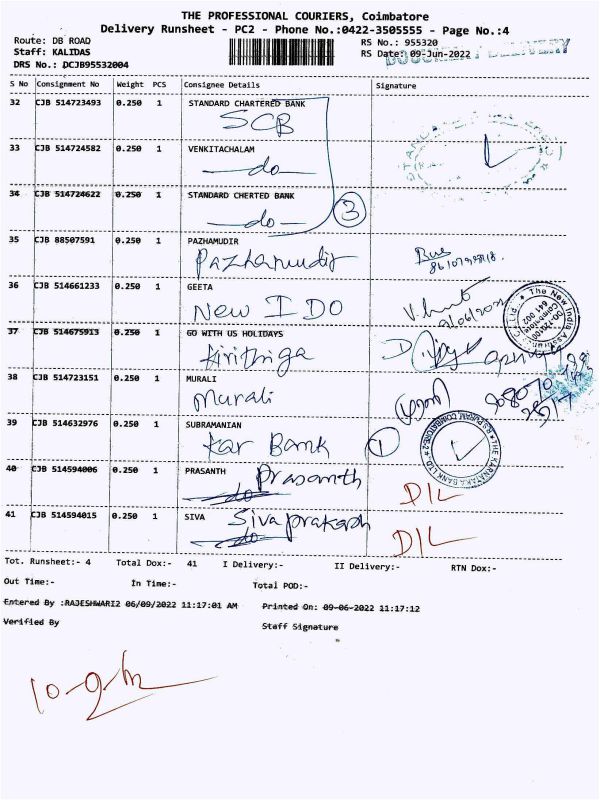 THE PROFESSIONAL COURIERS, Coimbatore
Delivery Runsheet - PC2 - Phone No.:0422-3505555 - Page No.:4
Route: DB ROAD RS No.: 955320
Staff: KALIDAS RS Date: 09-Jun-2022
DRS No.: DCJB95532004
DOCUMENT DELIVERY
S No Consignment No Weight PCS Consignee Details Signature
32 CJB 514723493 0.250 1 STANDARD CHARTERED BANK
SCB
33 CJB 514724582 0.250 1 VENKITACHALAM
-do-
34 CJB 514724622 0.250 1 STANDARD CHERTED BANK
-do- 3
35 CJB 88507591 0.250 1 PAZHAMUDIR
Pazhamudir
36 CJB 514661233 0.250 1 GEETA
New I DO
The New India Assurance Co. Ltd.
37 CJB 514675913 0.250 1 GO WITH US HOLIDAYS
Kirithiga
38 CJB 514723151 0.250 1 MURALI
Murali
39 CJB 514632976 0.250 1 SUBRAMANIAN
Kar Bank 1
THE KARNATAKA BANK LTD. R.S.PURAM, COIMBATORE-2
40 CJB 514594006 0.250 1 PRASANTH
Prasanth D/L
do
41 CJB 514594015 0.250 1 SIVA
Siva prakash D/L
do
Tot. Runsheet:- 4 Total Dox:- 41 I Delivery:- II Delivery:- RTN Dox:-
Out Time:- In Time:- Total POD:-
Entered By :RAJESHWARI2 06/09/2022 11:17:01 AM Printed On: 09-06-2022 11:17:12
Verified By Staff Signature